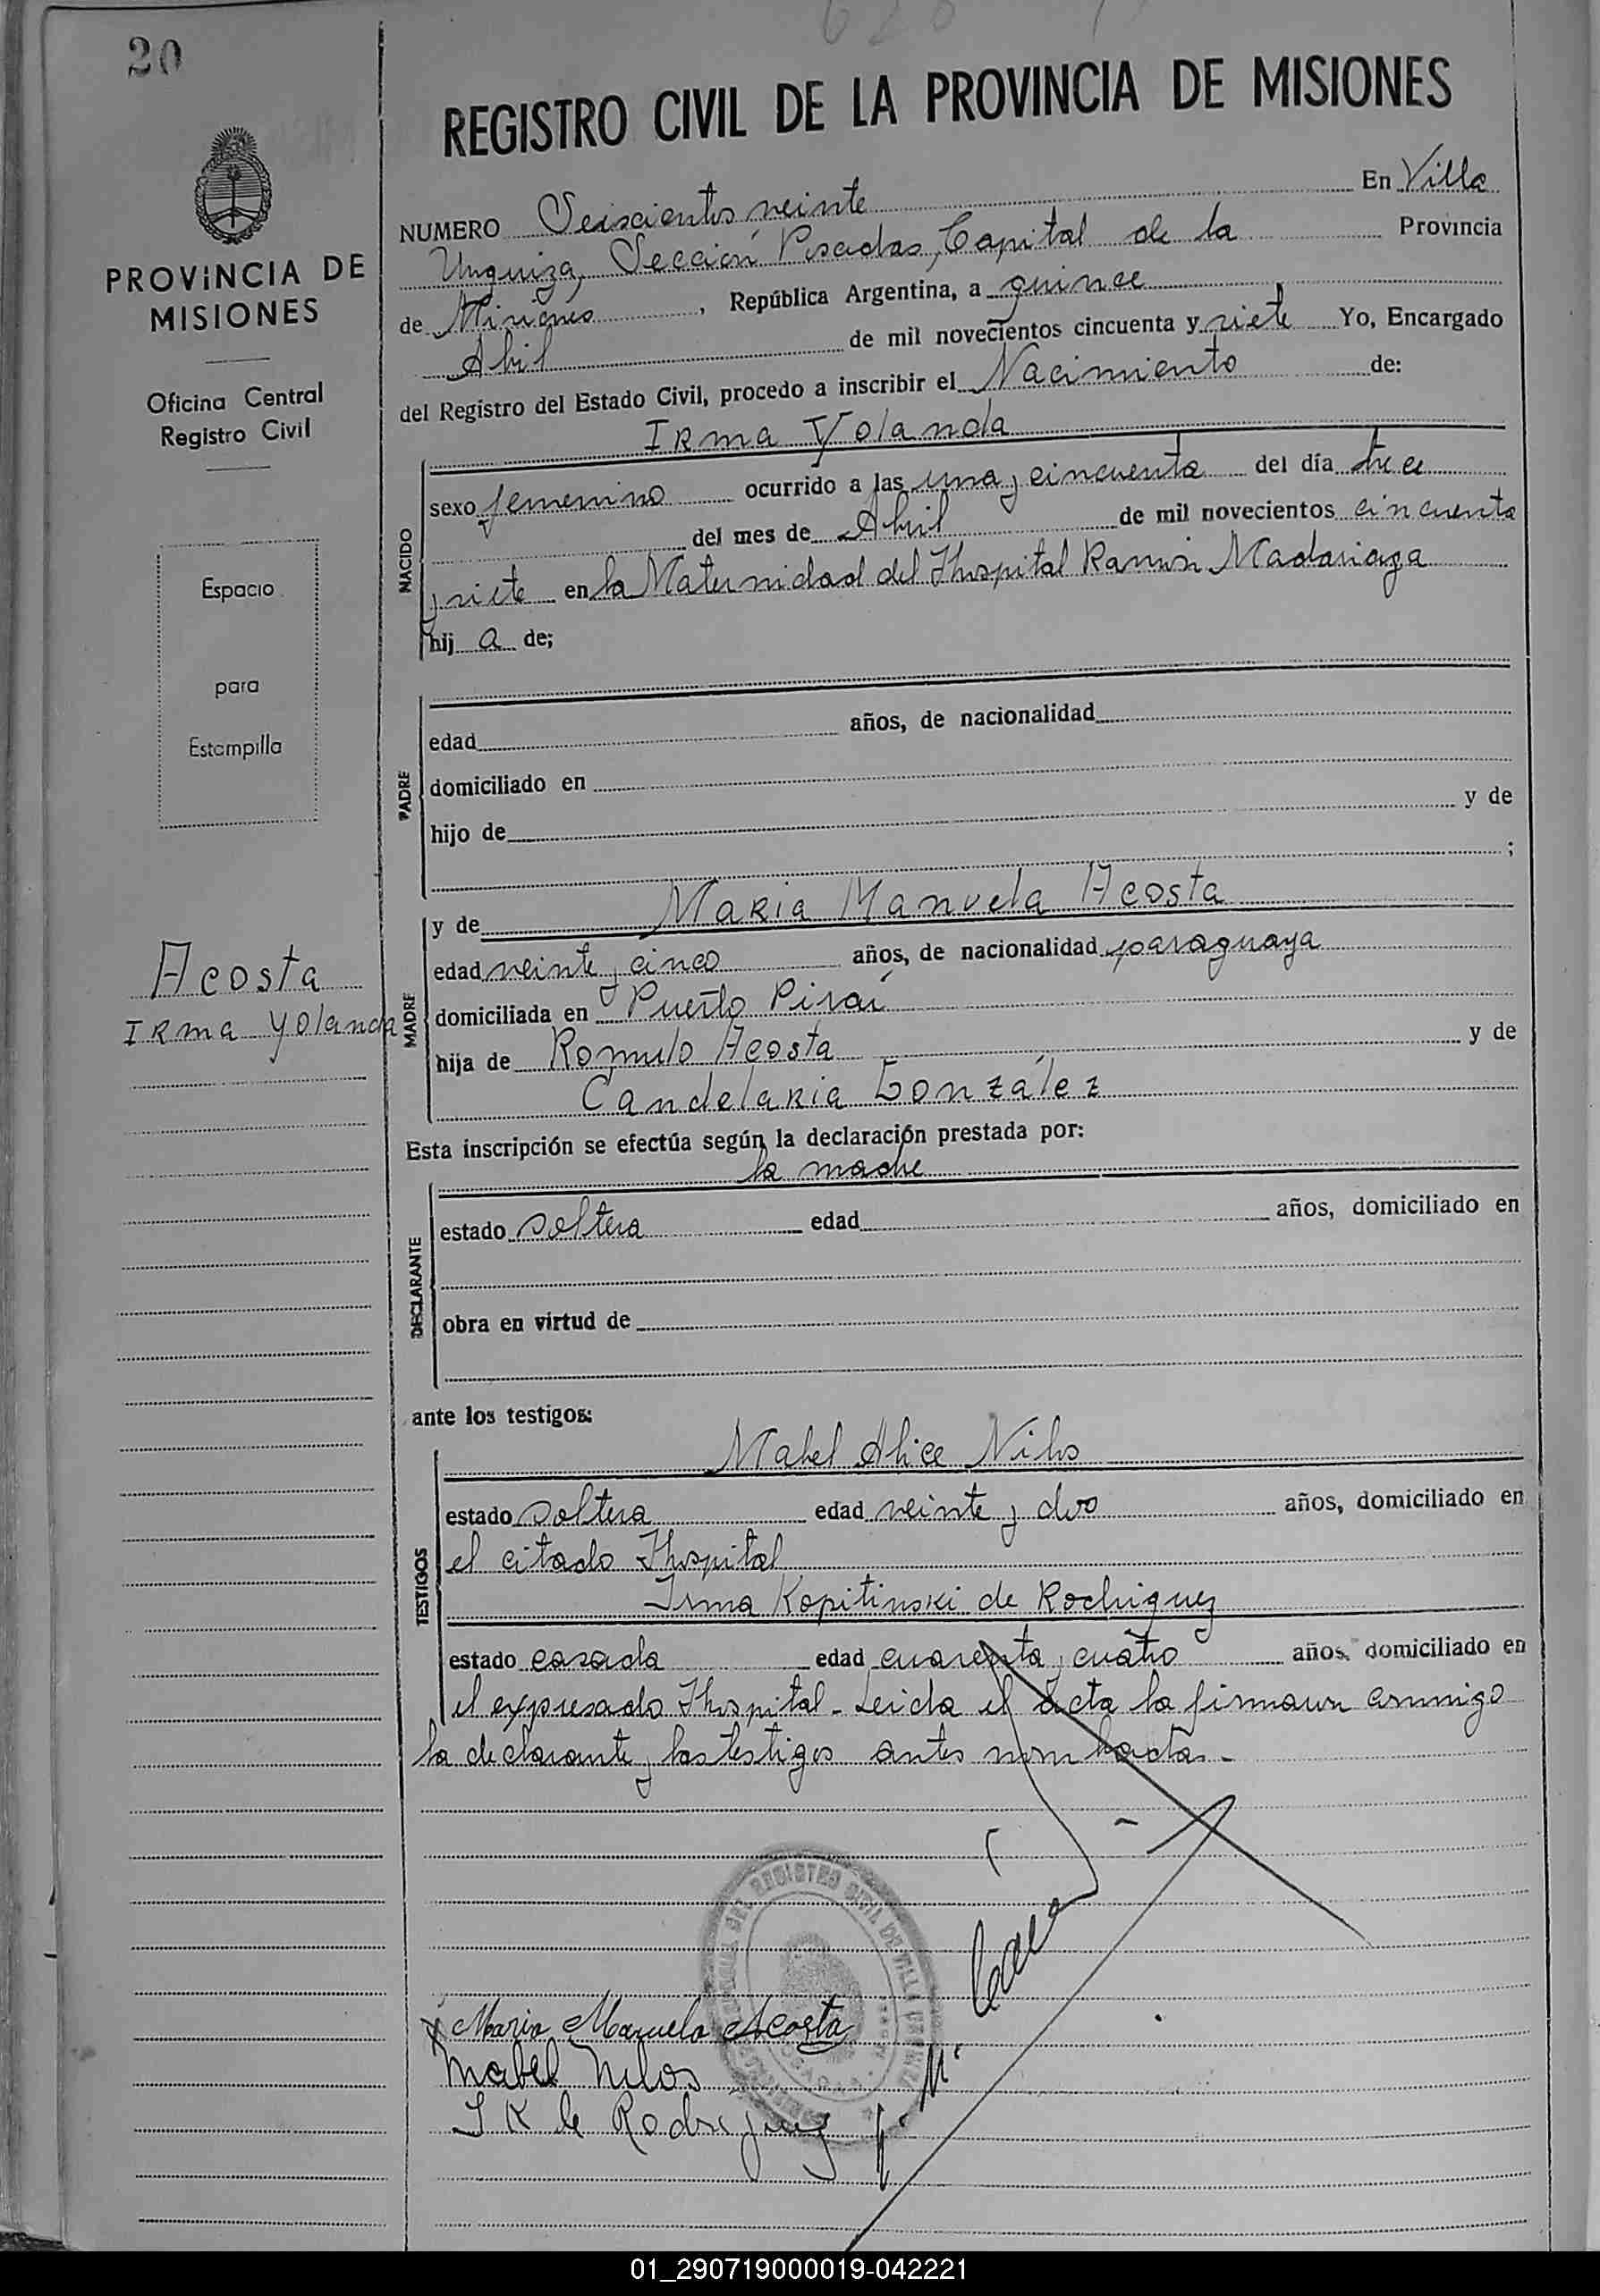 20
REGISTRO CIVIL DE LA PROVINCIA DE MISIONES
NUMERO Seiscientos veinte En Villa
Urquiza, Sección Posadas, Capital de la Provincia
de Misiones, República Argentina, a quince
Abril de mil novecientos cincuenta y siete Yo, Encargado
del Registro del Estado Civil, procedo a inscribir el Nacimiento de:
Irma Yolanda
NACIDO
sexo femenino ocurrido a las una y cincuenta del día trece
del mes de Abril de mil novecientos cincuenta
y siete en la Maternidad del Hospital Ramón Madariaga
hij a de;
PADRE
edad años, de nacionalidad
domiciliado en
hijo de y de
;
MADRE
y de Maria Manuela Acosta
edad veinte y cinco años, de nacionalidad paraguaya
domiciliada en Puerto Piraí
hija de Romulo Acosta y de
Candelaria González
Esta inscripción se efectúa según la declaración prestada por:
la madre
DECLARANTE
estado soltera edad años, domiciliado en
obra en virtud de
ante los testigos:
Mabel Alice Nilos
TESTIGOS
estado soltera edad veinte y dos años, domiciliado en
el citado Hospital
Irma Kopitinski de Rodriguez
estado casada edad cuarenta y cuatro años, domiciliado en
el expresado Hospital - Leida el acta la firmaron conmigo
la declarante y las testigos antes nombradas.-
Maria Manuela Acosta
Mabel Nilos
I K de Rodriguez
PROVINCIA DE
MISIONES
Oficina Central
Registro Civil
Espacio
para
Estampilla
Acosta
Irma Yolanda
01_290719000019-042221